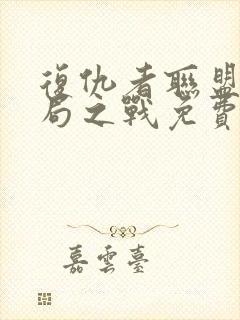 復仇者聯盟
局之戰免費
嘉雲臺